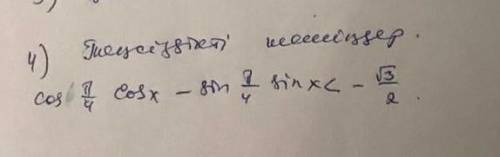 4) Теңсіздікті шешіңдер.
cos π/4 cosx - sin π/4 sinx < - √3/2.